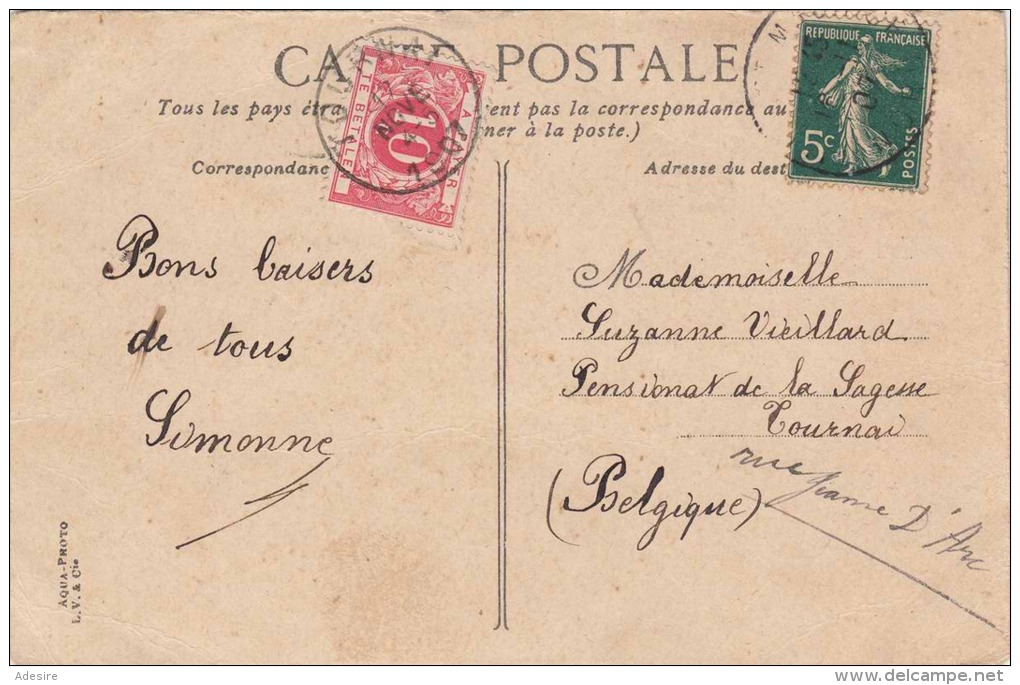 CA POSTALE
Tous les pays étra ent pas la correspondance au
ner à la poste.)
Correspondanc
Adresse du dest
TOURNAI
NOVE
1907
A PAYER
TE BETALEN
10
REPUBLIQUE FRANÇAISE
5c
POSTES
Bons baisers
de tous
Simonne
Mademoiselle
Suzanne Vieillard
Pensionat de la Sagesse
Tournai
(Belgique)
rue Jeanne D'Arc
AQUA-PHOTO
L. V. & Cie
Adesire
delcampe.net